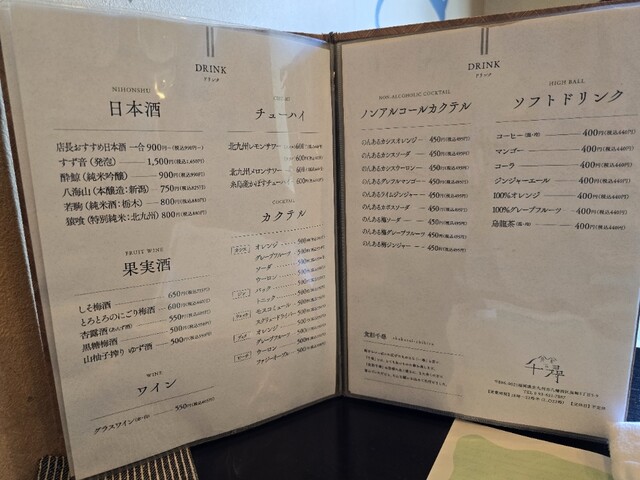 DRINK
ドリンク
NIHONSHU
日本酒
店長おすすめ日本酒 一合 900円〜(税込990円〜)
すず音(発泡) 1,500円(税込1,650円)
酔鯨(純米吟醸) 900円(税込990円)
八海山(本醸造:新潟) 750円(税込825円)
若駒(純米酒:栃木) 800円(税込880円)
猿喰(特別純米:北九州) 800円(税込880円)
FRUIT WINE
果実酒
しそ梅酒 650円(税込715円)
とろとろのにごり梅酒 600円(税込660円)
杏露酒(あんず酒) 550円(税込605円)
黒糖梅酒 500円(税込550円)
山柚子搾り ゆず酒 500円(税込550円)
WINE
ワイン
グラスワイン(赤・白) 550円(税込605円)
チューハイ
北九州レモンサワー 600円
北九州メロンサワー 600円
糸島産かぼすチューハイ 600円
COCKTAIL
カクテル
カシス
オレンジ 500円(税込550円)
グレープフルーツ 500円(税込550円)
ソーダ 500円(税込550円)
ウーロン 500円(税込550円)
ジン
バック 500円(税込550円)
トニック 500円(税込550円)
ウォッカ
モスコミュール 500円(税込550円)
スクリュードライバー 500円(税込550円)
オレンジ 500円(税込550円)
グレープフルーツ 500円(税込550円)
ピーチ
ウーロン 500円(税込550円)
ファジーネーブル 500円(税込550円)
DRINK
ドリンク
NON-ALCOHOLIC COCKTAIL
ノンアルコールカクテル
のんあるカシスオレンジ 450円(税込495円)
のんあるカシスソーダ 450円(税込495円)
のんあるカシスウーロン 450円(税込495円)
のんあるグレフルマンゴー 450円(税込495円)
のんあるライムジンジャー 450円(税込495円)
のんあるカボスソーダ 450円(税込495円)
のんある梅ソーダ 450円(税込495円)
のんある梅グレープフルーツ 450円(税込495円)
のんある梅ジンジャー 450円(税込495円)
HIGH BALL
ソフトドリンク
コーヒー(温・冷) 400円(税込440円)
マンゴー 400円(税込440円)
コーラ 400円(税込440円)
ジンジャーエール 400円(税込440円)
100%オレンジ 400円(税込440円)
100%グレープフルーツ 400円(税込440円)
烏龍茶(温・冷) 400円(税込440円)